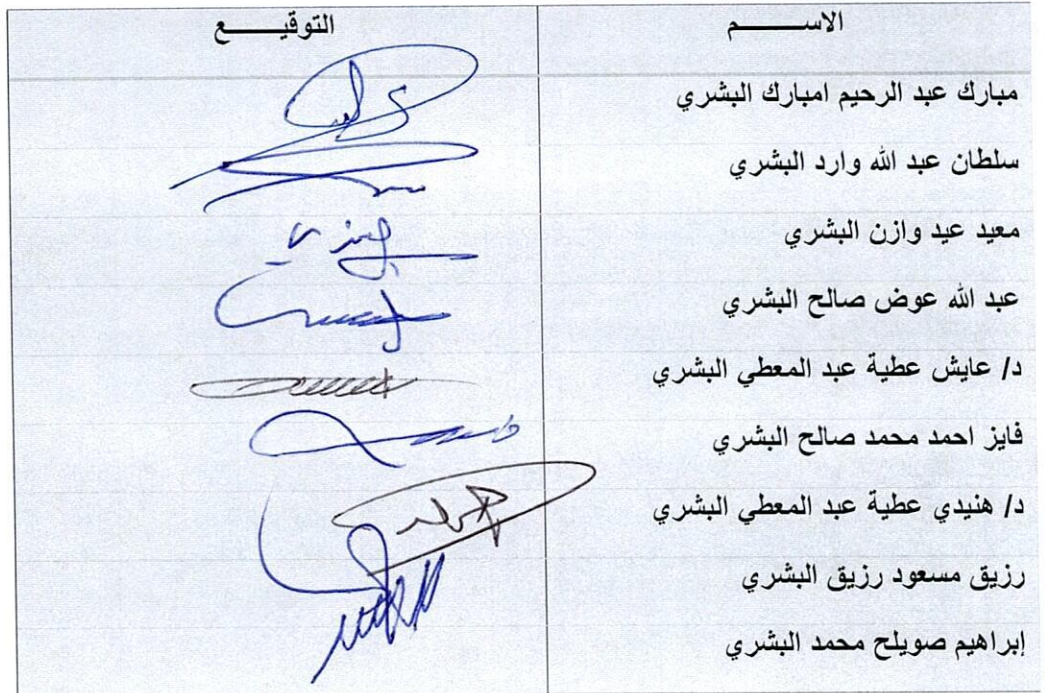 الاســـــم التوقيـــــع
مبارك عبد الرحيم امبارك البشري
سلطان عبد الله وارد البشري
معيد عيد وازن البشري
عبد الله عوض صالح البشري
د/ عايش عطية عبد المعطي البشري
فايز احمد محمد صالح البشري
د/ هنيدي عطية عبد المعطي البشري
رزيق مسعود رزيق البشري
إبراهيم صويلح محمد البشري